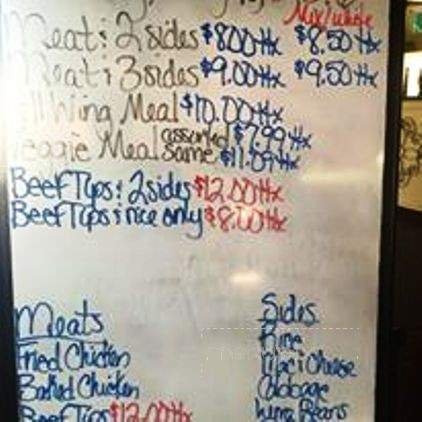 Mix/white
Meat & 2 sides $8.00+tx $8.50+tx
Meat & 3 sides $9.00+tx $9.50+tx
Wing Meal $10.00+tx
Veggie Meal assorted $7.99+tx
Same $11.09+tx
Beef Tips & 2 sides $12.00+tx
Beef Tips & rice only $8.00+tx
Meats
Sides
Fried Chicken
Rice
Baked Chicken
Mac & Cheese
Beef Tips $12.00+tx
Cabbage
Lima Beans